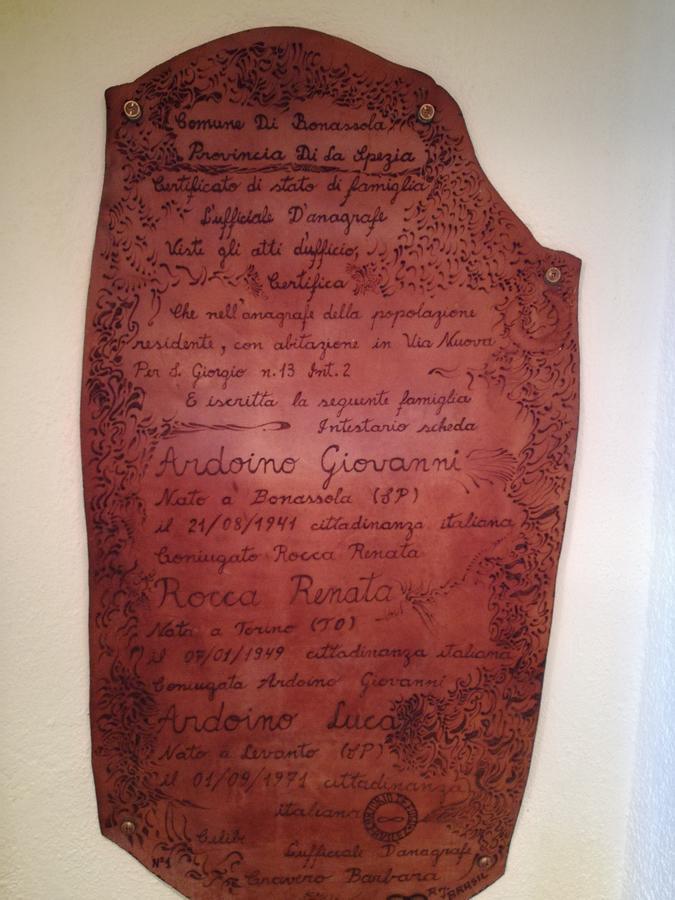 Comune Di Bonassola
Provincia Di La Spezia
Certificato di stato di famiglia
L'ufficiale D'anagrafe
Visti gli atti d'ufficio,
Certifica
Che nell'anagrafe della popolazione
residente, con abitazione in Via Nuova
Per S. Giorgio n.13 Int.2
E iscritta la seguente famiglia
Intestario scheda
Ardoino Giovanni
Nato a Bonassola (SP)
il 21/08/1941 cittadinanza italiana
Coniugato Rocca Renata
Rocca Renata
Nata a Torino (TO)
il 07/01/1949 cittadinanza italiana
Coniugata Ardoino Giovanni
Ardoino Luca
Nato a Levanto (SP)
il 01/09/1971 cittadinanza
italiana
Celibe
L'ufficiale D'anagrafe
N°1 Cravero Barbara
RJ BRASIL